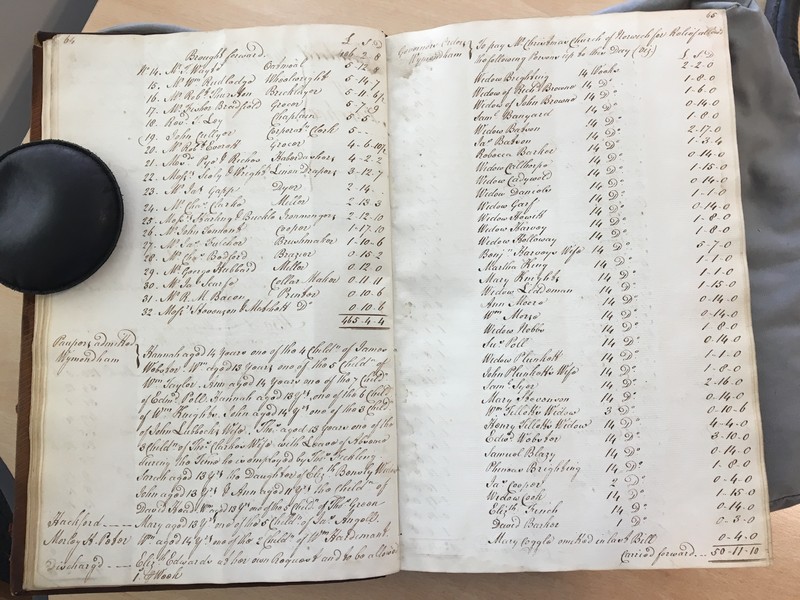 64
£ S D
Brought forward 406-2-8
No 14. Mr. Wayte Oatmeal 5-12-8
15. Mr. Wm. Rudledge Wheelwright 5-14-7
16. Mr. Robt. Thurston Bricklayer 5-11-6½
17. Mr. Fisher Bradfield Grocer 5-7-9
18. Revd. S. Ley Chaplain 5-5-
19. John Cullyer Corporatn. Clerk 5--
20. Mr. Robt. Grocer 4-6-10½
21. Messrs. Pye & Haberdashers 4-2-2
22. Messrs. & Wright Linen Drapers 3-12-7
23. Mr. Jas. Gapp Dyer 2-14-
24. Mr. Chas. Clarke Miller 2-13-3
25. Messrs. & Buckle Ironmongers 2-12-10
26. Mr. John Cooper 1-17-10
27. Mr. Jas. Brushmaker 1-10-6
28. Mr. Bedford Brazier 0-15-2
29. Mr. George Hubbard Miller 0-12-0
30. Mr. Jas. Scarfe Collar Maker 0-11-11
31. Mr. R. M. Bacon Printer 0-10-6
32. Messrs. Stevenson & Matchett Do. 0-10-6
465-4-4
Paupers admitted
Wymondham
Hannah aged 14 Years one of the 4 Childn. of James
Webster. Wm. aged 13 Years one of the 5 Childn. of
Wm. Taylor. Ann aged 14 Years one of the 7 Childn.
of Edmd. Poll. Hannah aged 13 Yrs. one of the 6 Childn.
of Wm. Knights. John aged 14 Yrs. one of the 3 Childn.
of John Lubbock's Wife. Thos. aged 13 Years one of the
3 Childn. of Thos. Clarkes Wife with Leave of Absence
during the Time he is employed by Thos. Tickling.
Sarah aged 13 Yrs. the Daughter of Elizth. Bensly Widow
John aged 13 Yrs. & Ann aged 11 Yrs. the Childn. of
David Head. Wm. aged 13 Yrs. one of the 5 Childn. of Thos. Green
Hackford ---- Mary aged 13 Yrs. one of the 5 Childn. of Jas. Angold.
Morley St. Peter Wm. aged 14 Yrs. one of the 2 Childn. of Wm. Hardiment
Dischargd ---- Elizth. Edwards at her own Request and to be allowed
1/- Week
65
Governors Orders
Wymondham
To pay Mr. Christmas Church of Norwich for Relief of
the following Persons up to this Day (Viz)
£ S D
Widow Brighting 14 Weeks 2-2-0
Widow of Richd. Browne 14 Do. 1-8-0
Widow of John Browne 14 Do. 1-6-0
Saml. Banyard 14 Do. 0-14-0
Widow Batson 14 Do. 1-8-0
Jas. Batson 14 Do. 2-17-0
Rebecca Barker 14 Do. 1-3-4
Widow Calthorpe 14 Do. 0-14-0
Widow Cadywold 14 Do. 1-15-0
Widow Daniels 14 Do. 0-14-0
Widow Garf 14 Do. 1-1-0
Widow Howett 14 Do. 0-14-0
Widow Harvey 14 Do. 1-8-0
Widow Holloway 14 Do. 1-8-0
Benjn. Harveys Wife 14 Do. 5-7-0
Martha King 14 Do. 1-1-0
Mary Knights 14 Do. 1-1-0
Widow Leddeman 14 Do. 1-15-0
Ann Moore 14 Do. 0-14-0
Wm. Morse 14 Do. 0-14-0
Widow Nobbs 14 Do. 1-8-0
Poll 14 Do. 0-14-0
Widow Plunkett 14 Do. 1-1-0
John Plunketts Wife 14 Do. 1-8-0
Saml. 14 Do. 2-16-0
Mary Stevenson 14 Do. 0-14-0
Wm. Tilletts Widow 3 Do. 0-10-6
Henry Tilletts Widow 14 Do. 4-4-0
Edwd. Webster 14 Do. 3-10-0
Samuel Blazy 14 Do. 0-14-0
Phineas Brighting 14 Do. 1-8-0
Jas. Cooper 2 Do. 0-4-0
Widow Cock 14 Do. 1-15-0
Elizth. French 14 Do. 0-14-0
David Barker 1 Do. 0-3-0
Mary Coggle omitted in last Bill 0-4-0
Carried forward... 50-11-10